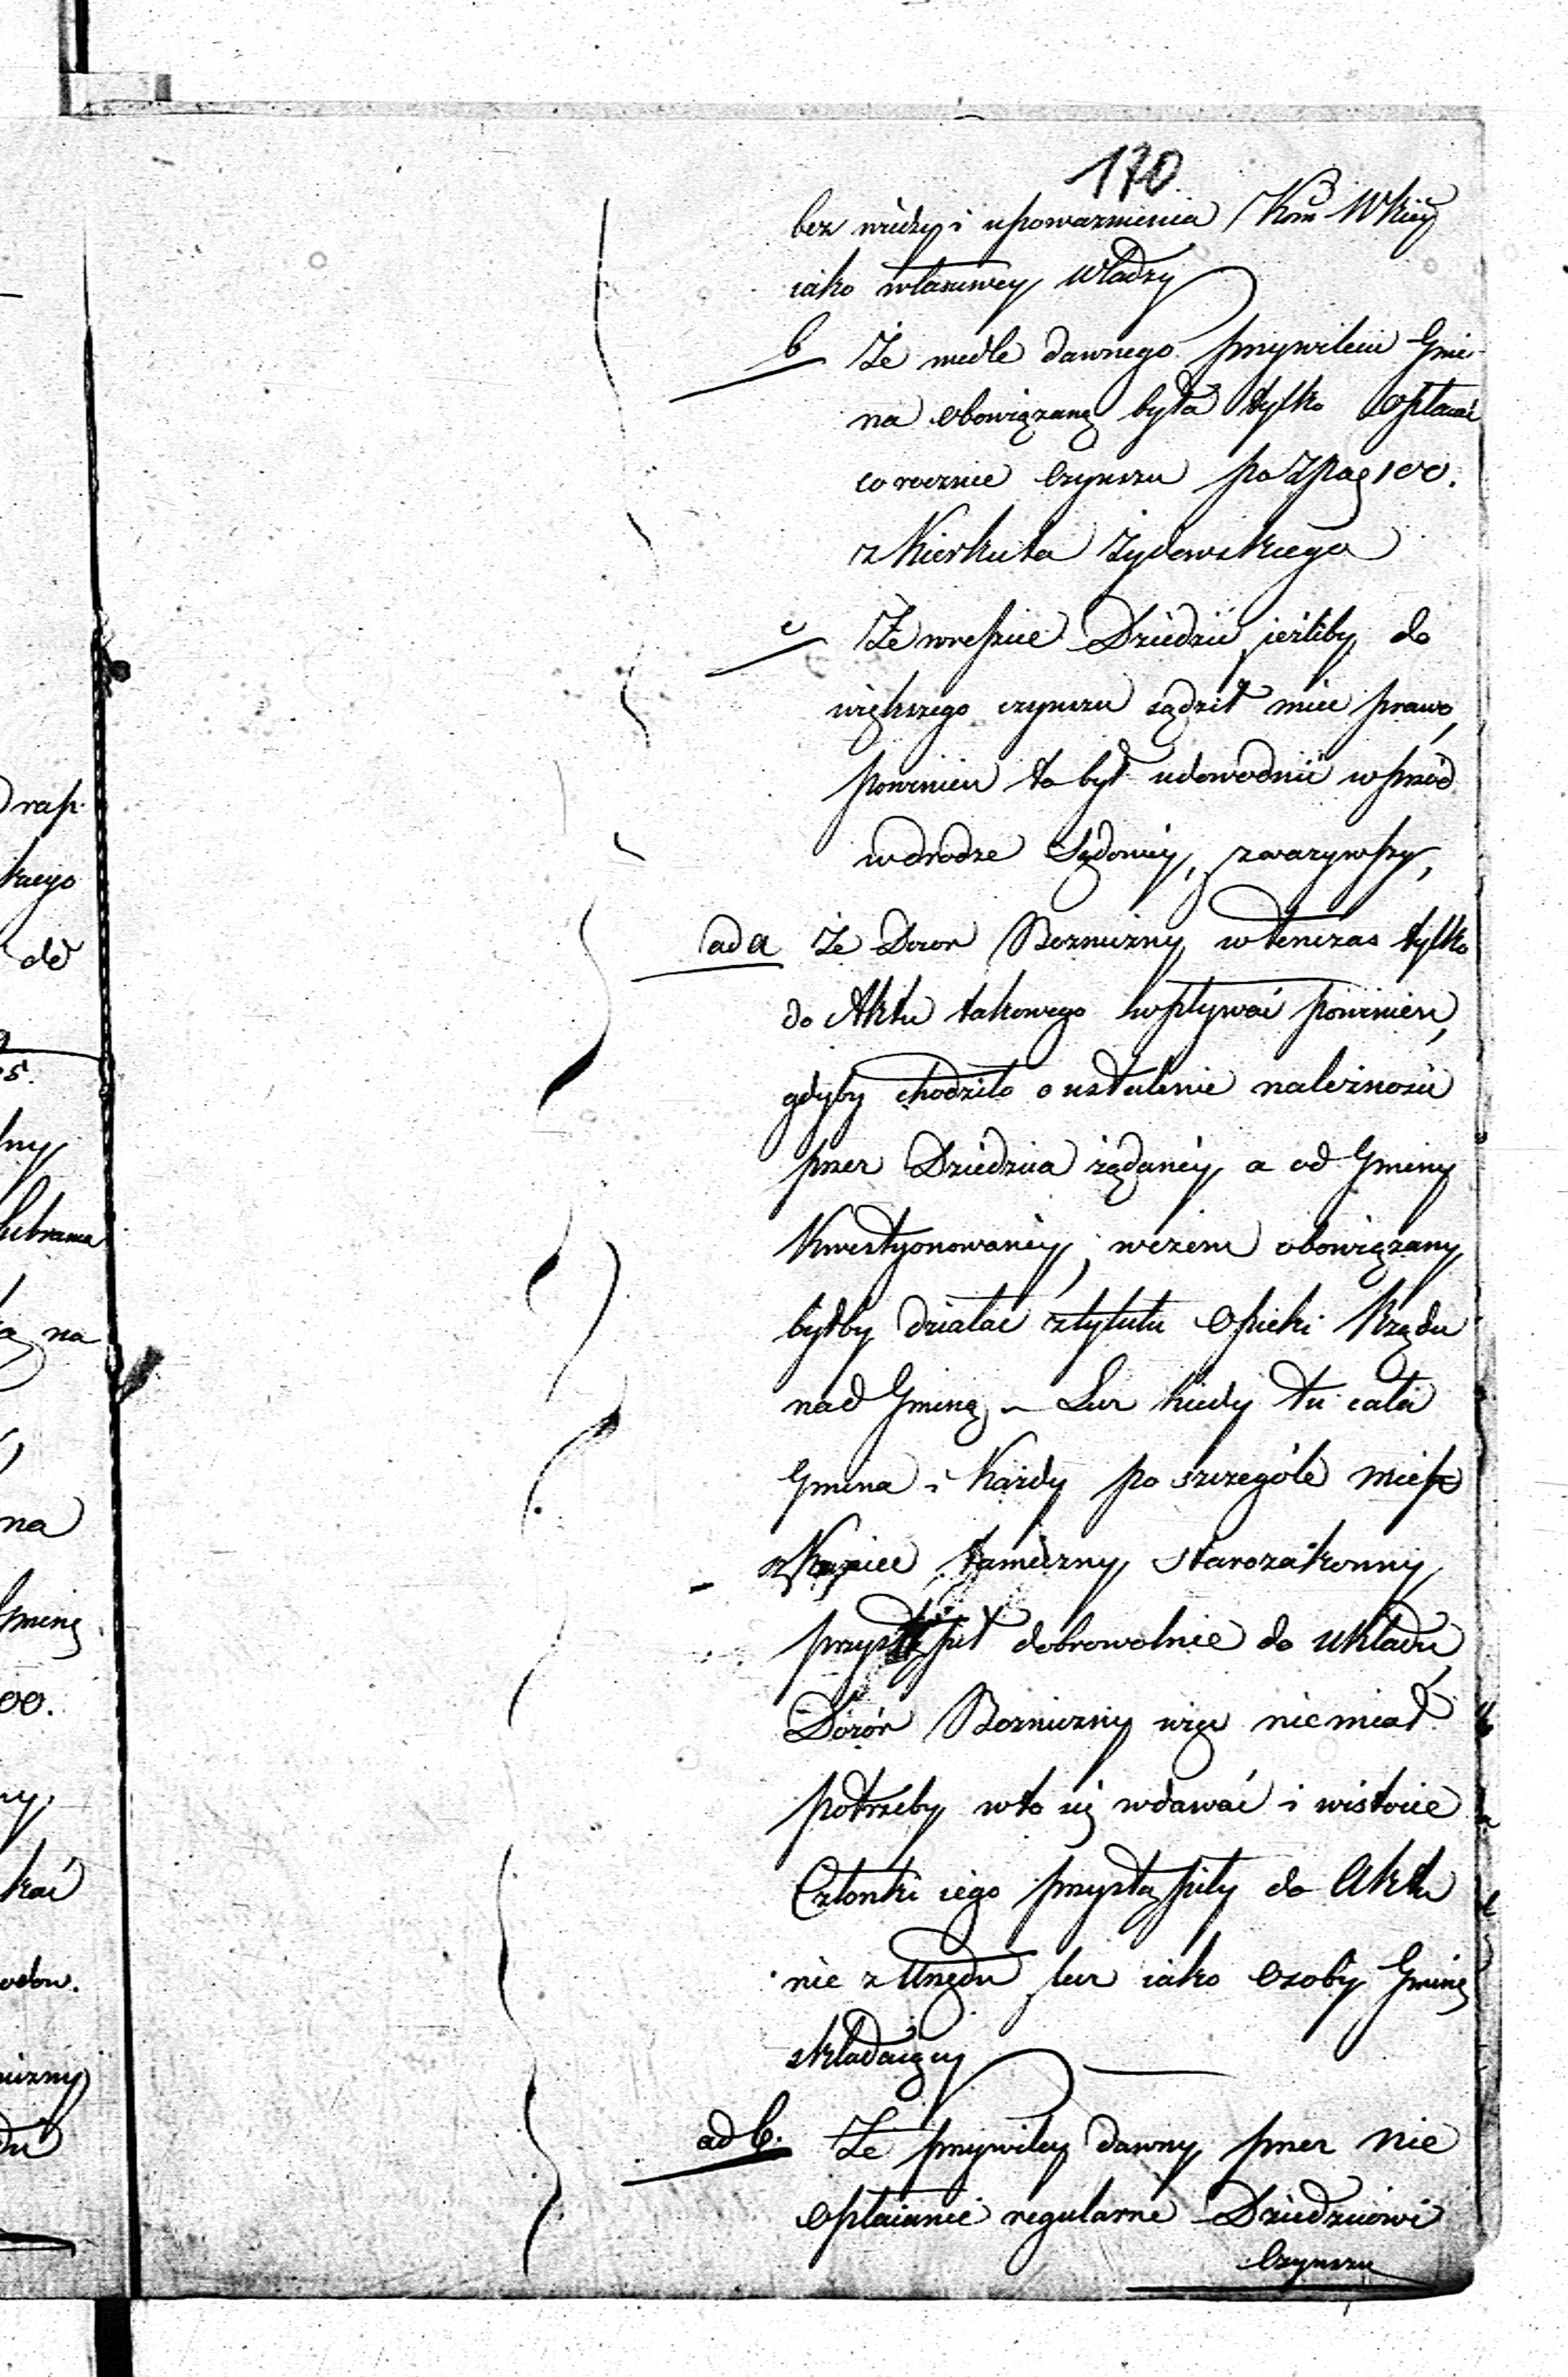 170
bez wiedzy i upoważnienia Kom̃ Wkiey
iako właściwey Władzy
b Że wedle dawnego przywileiu Gmi-
na obowiązaną była tylko opłacać
co rocznie czynszu po Zł. 100.
z Kierkuta Żydowskiego
c Że wreszcie Dziedzic jeżliby do
większego czynszu sądził mieć prawo,
powinien to był udowodnić wprzód
w drodze Sądowéy, zważywszy,
ad a Że Dozor Bozniczny wtenczas tylko
do Aktu takowego wpływać powinien,
gdyby chodziło o ustalenie należności
przez Dziedzica żądanéy a od Gminy
Kwestyonowanéy; w czem obowiązany
byłby działać z tytułu Opieki Rządu
nad Gminą – Lecz kiedy tu cała
Gmina i każdy po szczególe miesz
zkaniec tameczny starozakonny
przystąpił dobrowolnie do układu,
Dozór Bozniczny więc nie miał
potrzeby w to się wdawać i w istocie
Członki iego przystąpiły do Aktu
nie z Urzędu lecz iako Osoby Gminę
składaiący
ad b. Że przywiley dawny przez nie
opłacanie regularne Dziedzicowi
Czynszu
drap.
kiego
do
na
na
Gminę
00.